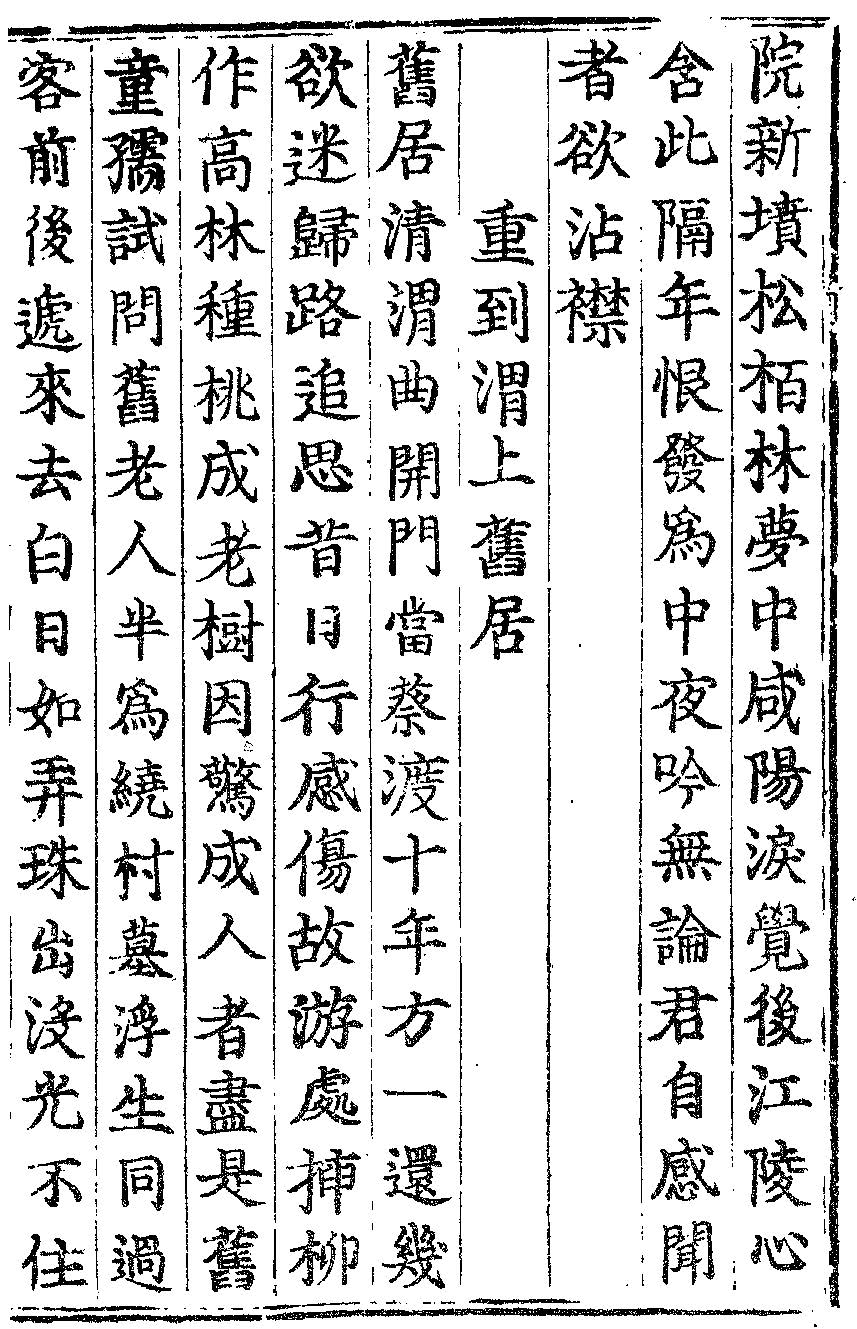 院新墳松栢林夢中咸陽淚覺後江陵心
含此隔年恨發爲中夜吟無論君自感聞
者欲沾襟
重到渭上舊居
舊居清渭曲開門當蔡渡十年方一還幾
欲迷歸路追思昔日行感傷故游處揷柳
作高林種桃成老樹因驚成人者盡是舊
童孺試問舊老人半爲繞村墓浮生同過
客前後遞來去白日如弄珠出沒光不住